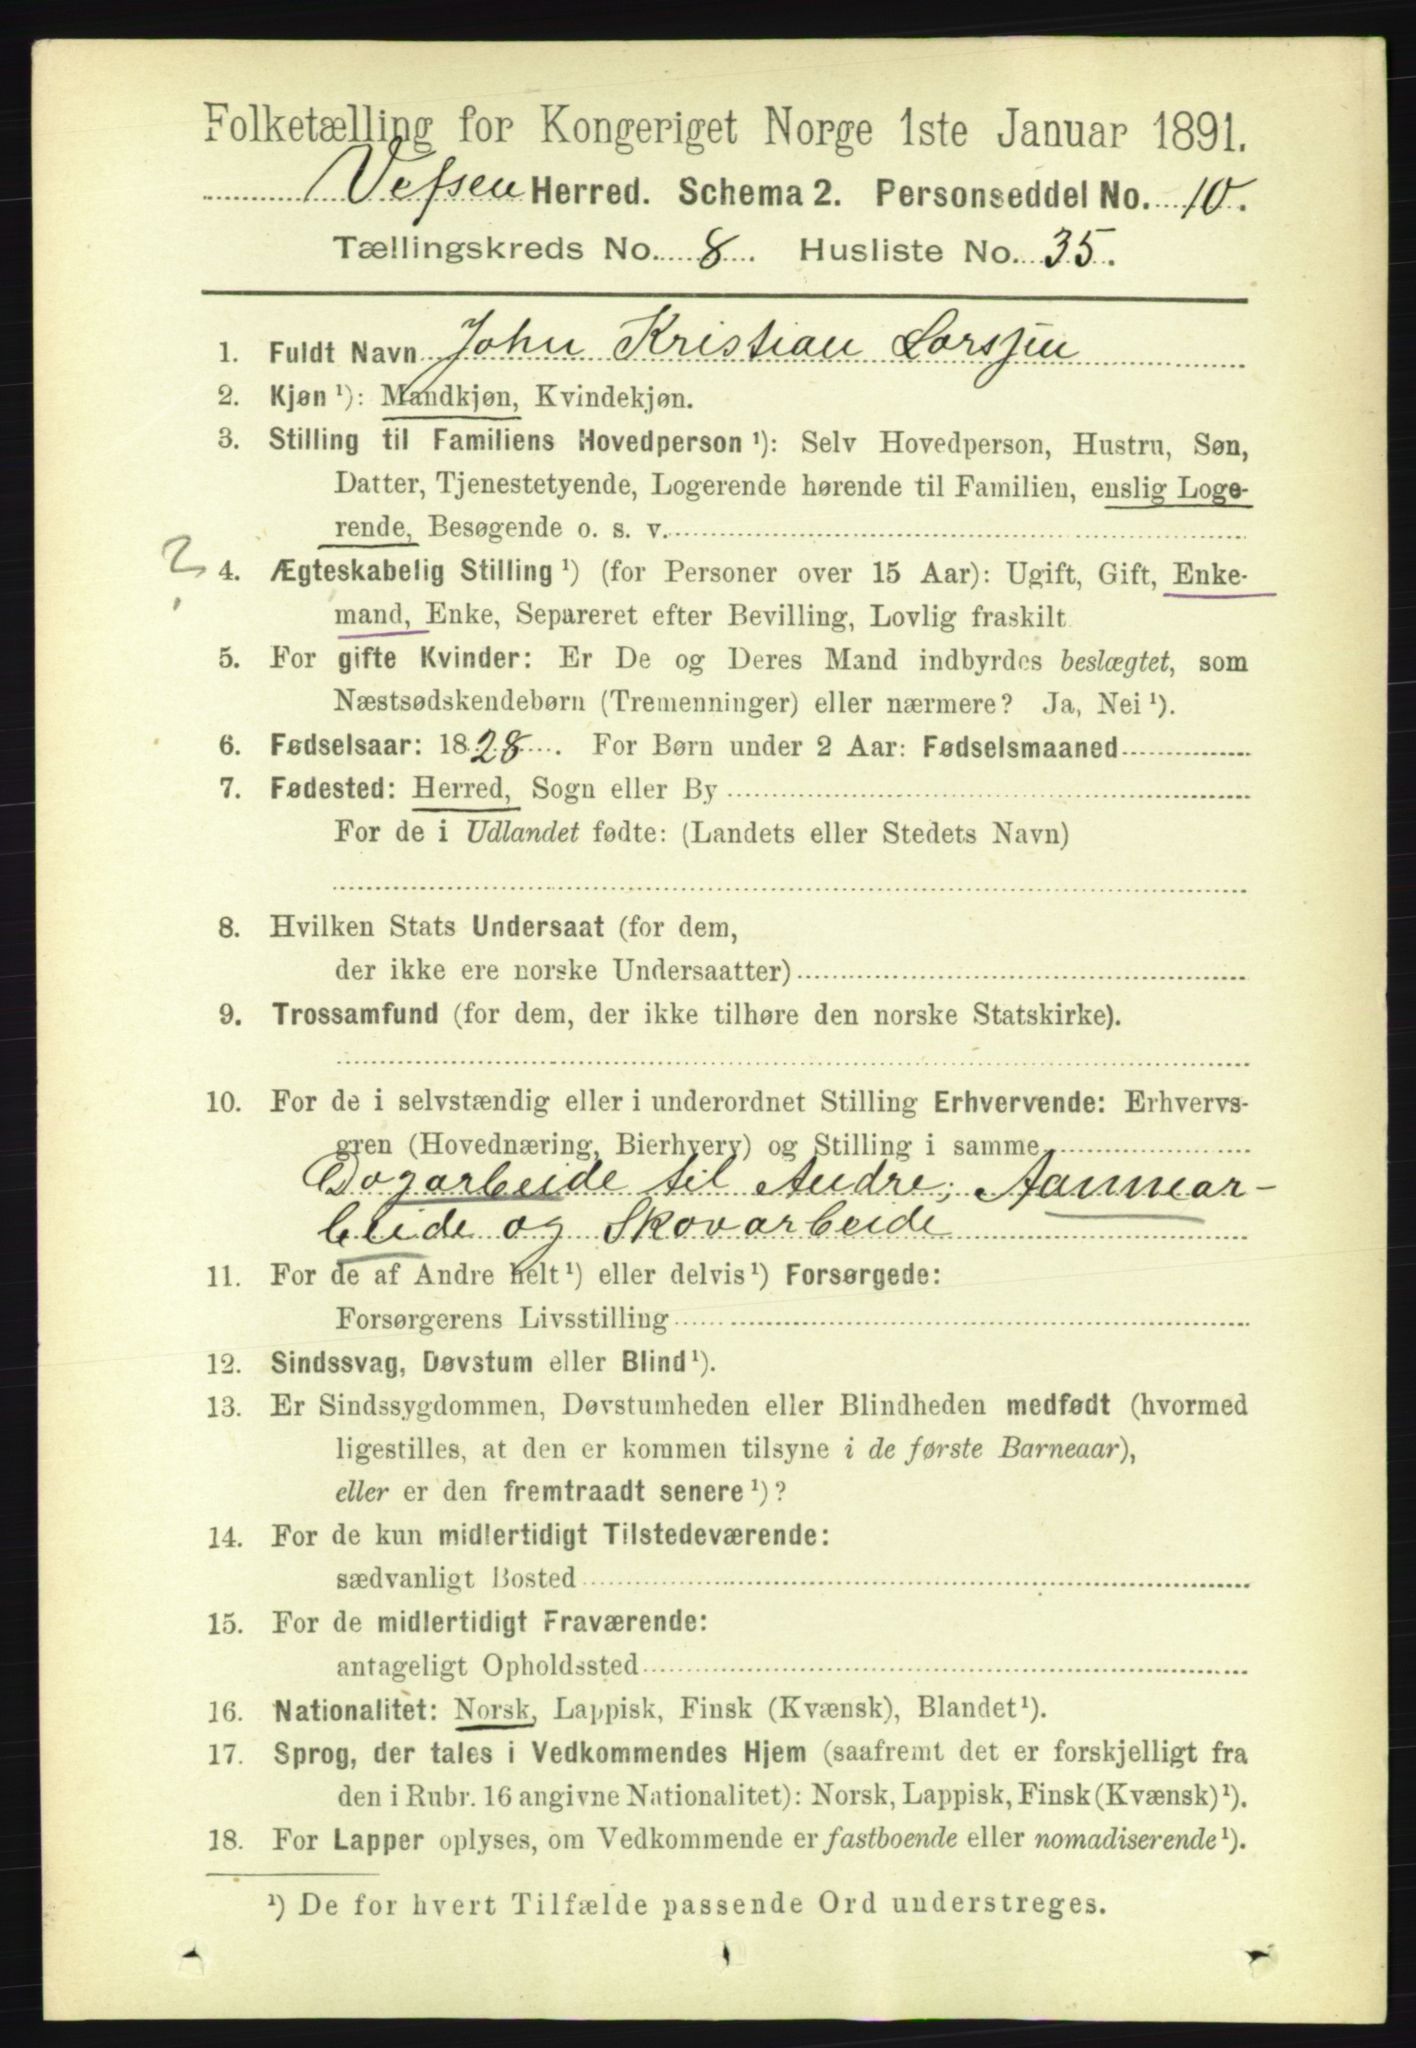 Folketælling for Kongeriget Norge 1ste Januar 1891.
Vefsen Herred. Schema 2. Personseddel No. 10.
Tællingskreds No. 8. Husliste No. 35.
1. Fuldt Navn John Kristian Larssen
2. Kjøn ¹): Mandkjøn, Kvindekjøn.
3. Stilling til Familiens Hovedperson ¹): Selv Hovedperson, Hustru, Søn,
Datter, Tjenestetyende, Logerende hørende til Familien, enslig Loge-
rende, Besøgende o. s. v.
? 4. Ægteskabelig Stilling ¹) (for Personer over 15 Aar): Ugift, Gift, Enke-
mand, Enke, Separeret efter Bevilling, Lovlig fraskilt
5. For gifte Kvinder: Er De og Deres Mand indbyrdes beslægtet, som
Næstsødskendebørn (Tremenninger) eller nærmere? Ja, Nei ¹).
6. Fødselsaar: 1828. For Børn under 2 Aar: Fødselsmaaned
7. Fødested: Herred, Sogn eller By
For de i Udlandet fødte: (Landets eller Stedets Navn)
8. Hvilken Stats Undersaat (for dem,
der ikke ere norske Undersaatter)
9. Trossamfund (for dem, der ikke tilhøre den norske Statskirke).
10. For de i selvstændig eller i underordnet Stilling Erhvervende: Erhvervs-
gren (Hovednæring, Bierhverv) og Stilling i samme
Dagarbeide til Andre; Aannear-
beide og Skovarbeide
11. For de af Andre helt ¹) eller delvis ¹) Forsørgede:
Forsørgerens Livsstilling
12. Sindssvag, Døvstum eller Blind ¹).
13. Er Sindssygdommen, Døvstumheden eller Blindheden medfødt (hvormed
ligestilles, at den er kommen tilsyne i de første Barneaar),
eller er den fremtraadt senere ¹)?
14. For de kun midlertidigt Tilstedeværende:
sædvanligt Bosted
15. For de midlertidigt Fraværende:
antageligt Opholdssted
16. Nationalitet: Norsk, Lappisk, Finsk (Kvænsk), Blandet ¹).
17. Sprog, der tales i Vedkommendes Hjem (saafremt det er forskjelligt fra
den i Rubr. 16 angivne Nationalitet): Norsk, Lappisk, Finsk (Kvænsk) ¹).
18. For Lapper oplyses, om Vedkommende er fastboende eller nomadiserende ¹).
¹) De for hvert Tilfælde passende Ord understreges.